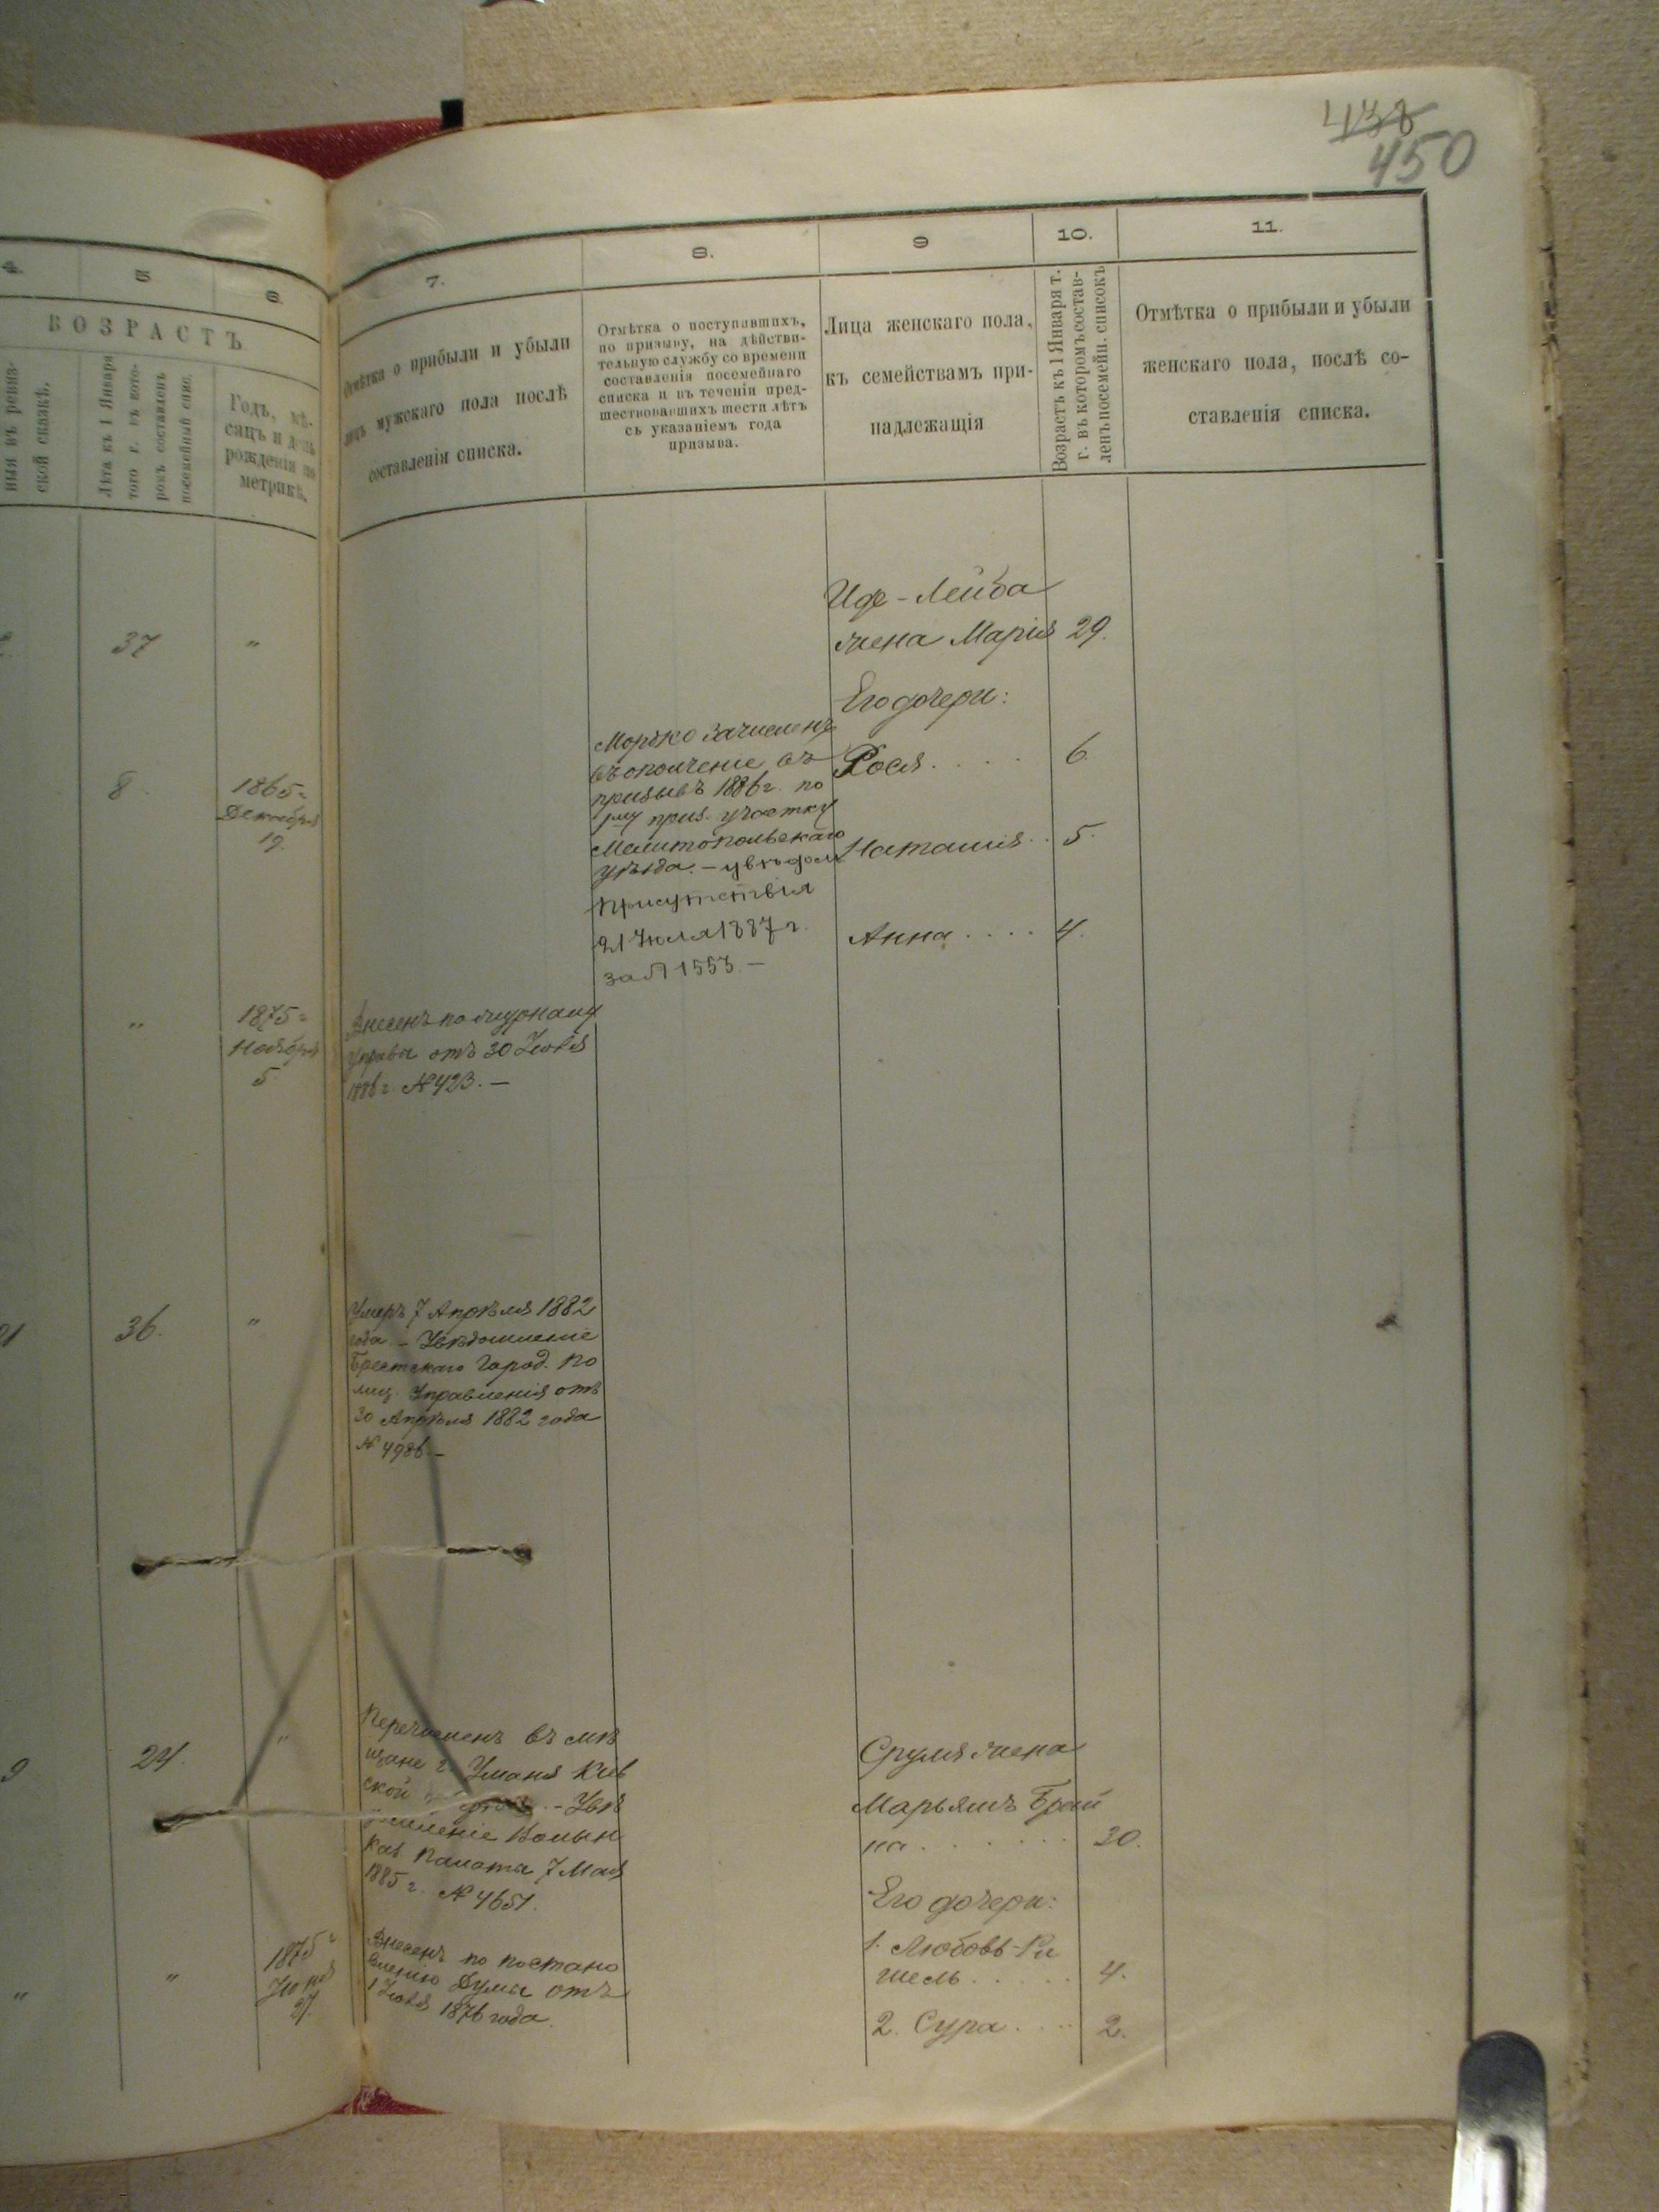 438
450
4.
5
6.
7.
8.
9
10.
11.
ВОЗРАСТЪ
ской сказкѣ.
Лѣта къ 1 Января
того г. въ кото-
ромъ составленъ
посемейный спис.
Годъ, мѣ-
сяцъ и день
рожденія по
метрикѣ.
Отмѣтка о прибыли и убыли
лицъ мужскаго пола послѣ
составленія списка.
Отмѣтка о поступившихъ,
по призыву, на дѣйстви-
тельную службу со времени
составленія посемейнаго
списка и въ теченіи пред-
шествовавшихъ шести лѣтъ
съ указаніемъ года
призыва.
Лица женскаго пола,
къ семействамъ при-
надлежащія
Возрастъ къ 1 Января т.
г. въ которомъ состав-
ленъ посемейн. списокъ
Отмѣтка о прибыли и убыли
женскаго пола, послѣ со-
ставленія списка.
37 "
Лейба
жена Марія 29.
Его дочери:
8. 1865 г.
Декабря
19.
Морько зачисленъ
въ ополченіе въ
призывъ 1886 г. по
1му приз. участку
Мелитопольскаго
уѣзда. – увѣдом
Присутствія
21 Июля 1887 г.
за № 1553. –
Рося . . . . 6
Наташия . . 5.
Анна . . . . 4.
" 1875 г.
Ноября
5.
Внесенъ по журналу
Управы отъ 30 Июля
1886 г. № 423. –
36. "
Умеръ 7 Апрѣля 1882
года. – Увѣдомленіе
Брестскаго Город. По
лиц. Управленія отъ
30 Апрѣля 1882 года
№ 4986. –
24. "
Перечисленъ въ мѣ
щане г. Уманя Кіев
ской – Увѣ
домленіе Волын
Каз Палаты 7 Мая
1885 г. № 4651.
Сруля жена
Марьямъ Брай
на . . . . . . 30.
Его дочери:
1. Любовь-Ри
шель . . . . . 4.
2. Сура . . . . 2.
" " 1875 г.
27.
Внесенъ по постано
вленію Думы отъ
1 Июля 1876 года.